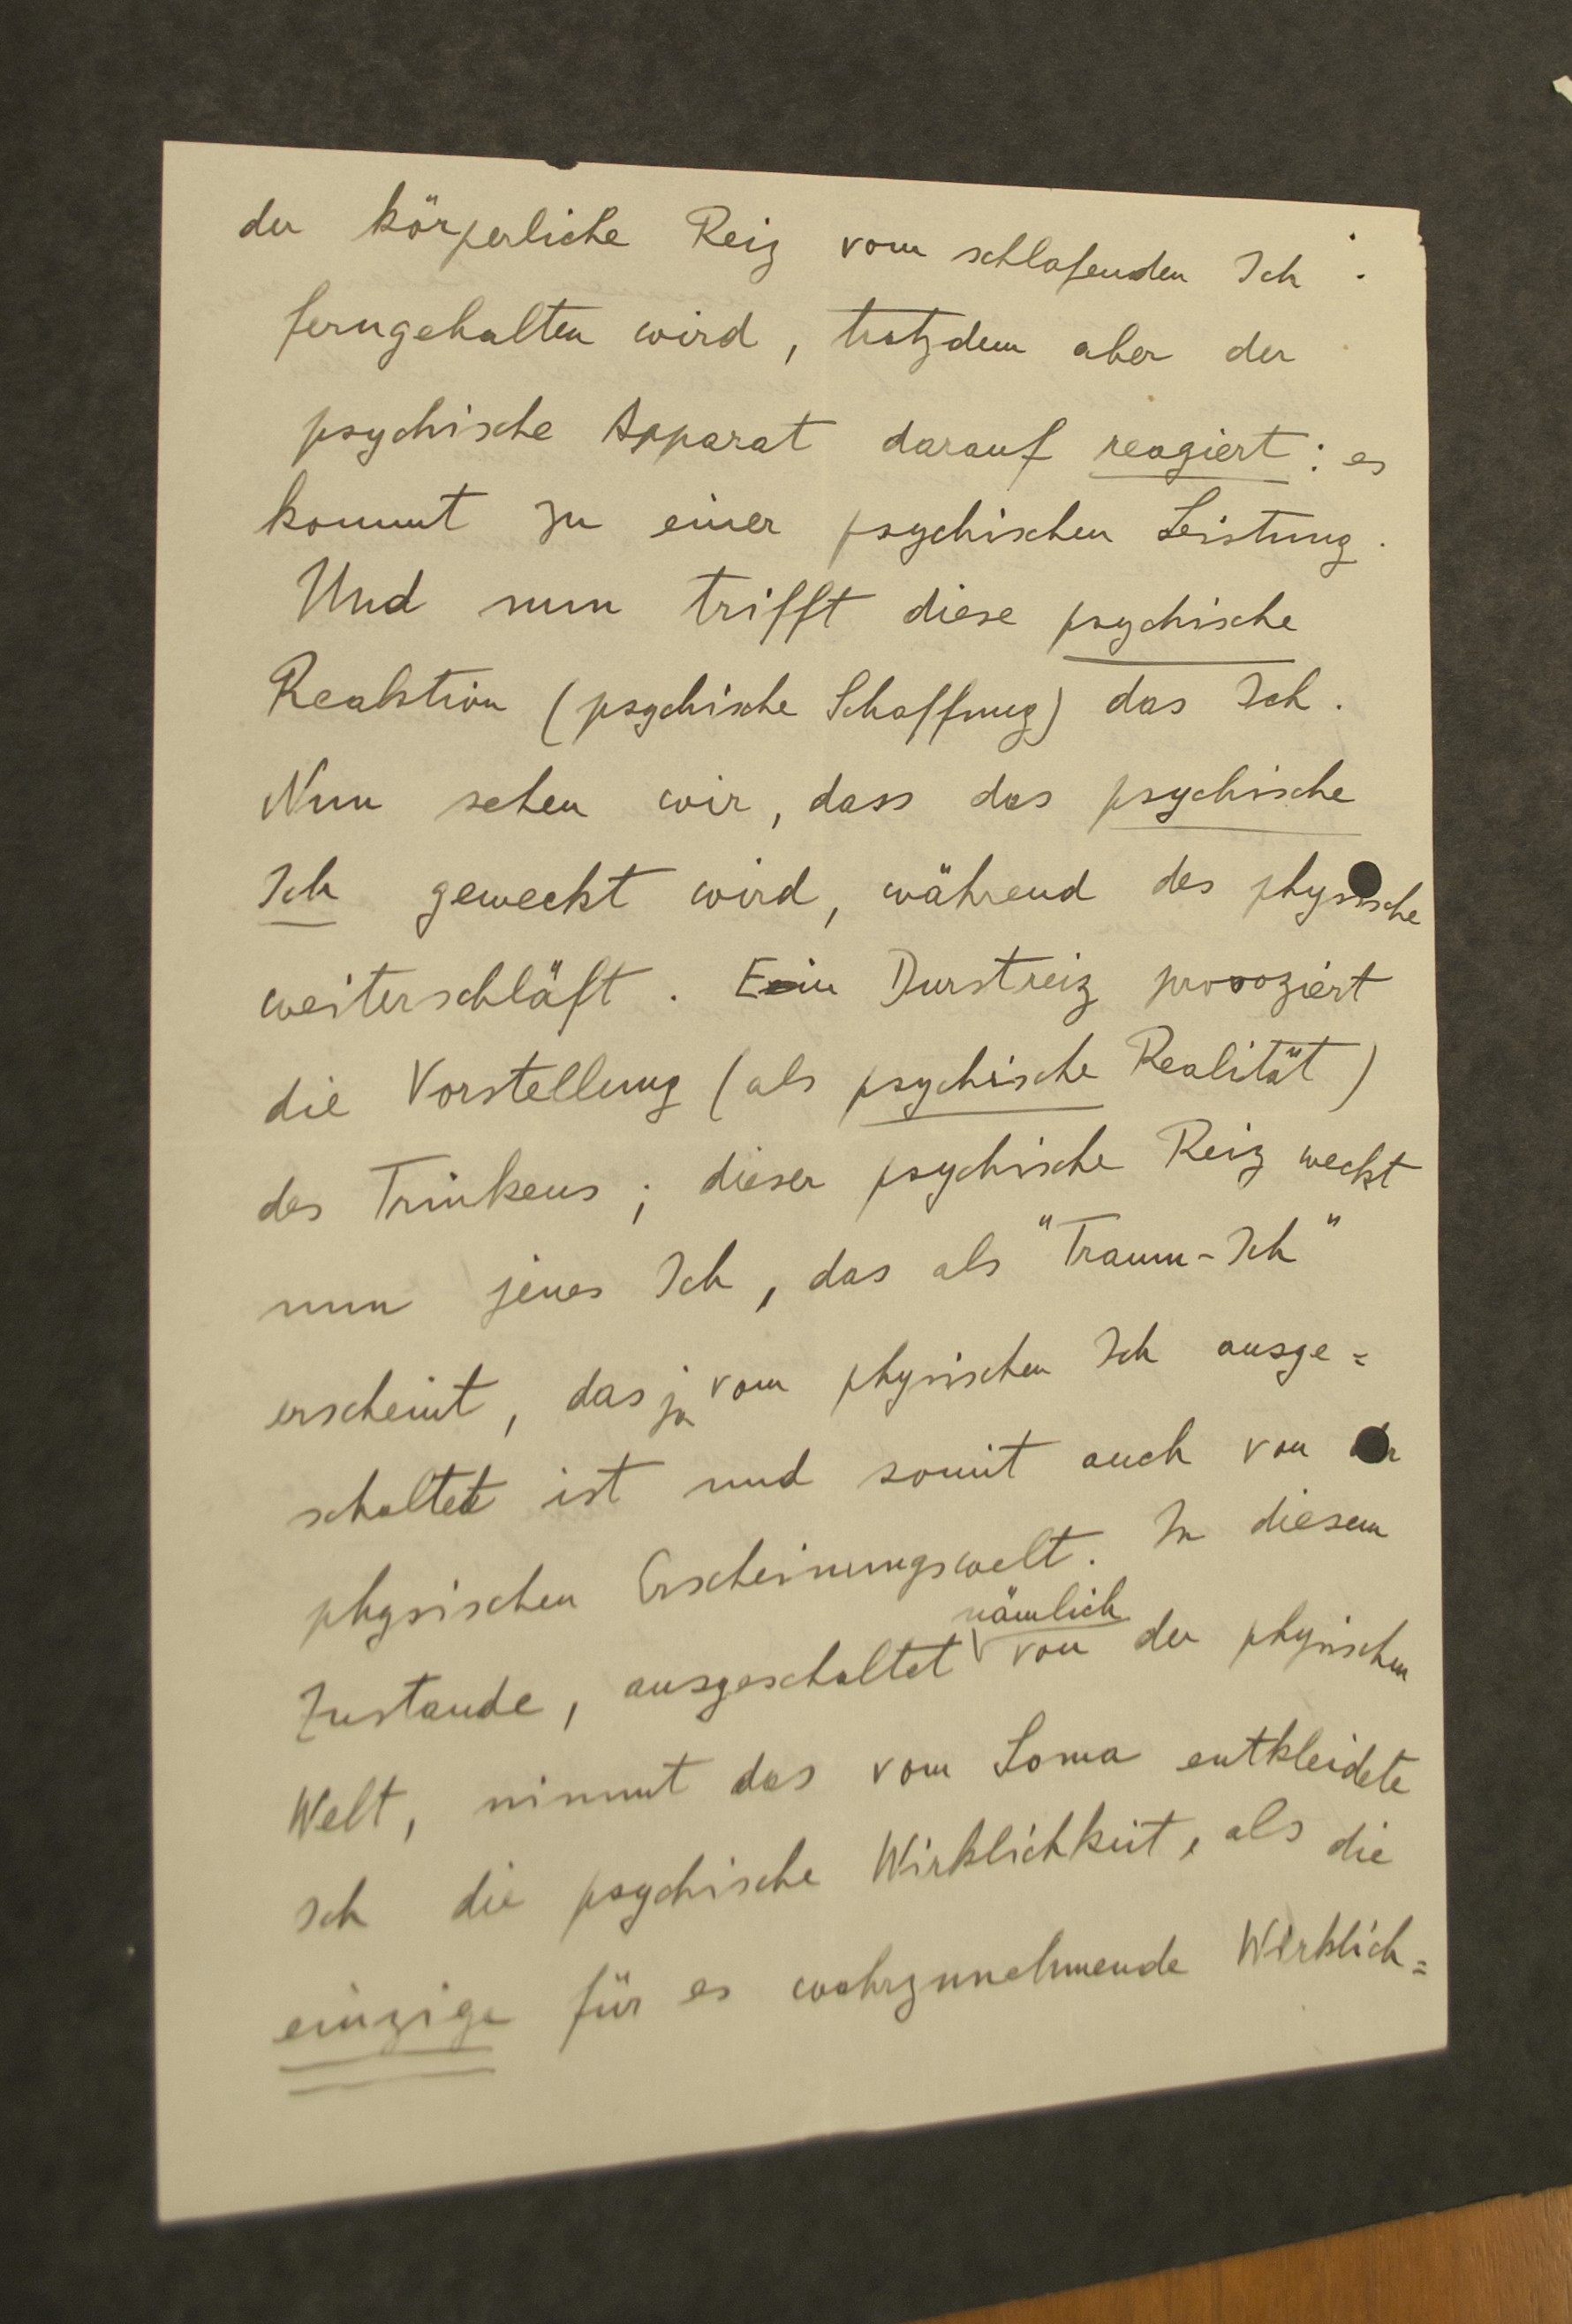 der körperliche Reiz vom schlafenden Ich
ferngehalten wird, trotzdem aber der
psychische Apparat darauf reagiert: es
kommt zu einer psychischen Leistung.
Und nun trifft diese psychische
Reaktion (psychische Schaffung) das Ich.
Nun sehen wir, dass das psychische
Ich geweckt wird, während das physische
weiterschläft. Ein Durstreiz provoziert
die Vorstellung (als psychische Realität)
des Trinkens; dieser psychische Reiz weckt
nun jenes Ich, das als "Traum-Ich"
erscheint, das ja vom physischen Ich ausge=
schaltet ist und somit auch von der
physischen Erscheinungswelt. In diesem
nämlich
Zustande, ausgeschaltet von der physischen
Welt, nimmt das vom Soma entkleidete
Ich die psychische Wirklichkeit, als die
einzige für es wahrzunehmende Wirklich=